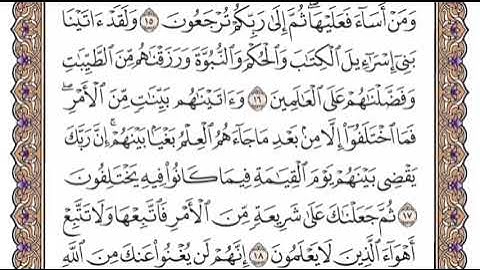 وَمَنْ أَسَآءَ فَعَلَيْهَا ۖ ثُمَّ إِلَىٰ رَبِّكُمْ تُرْجَعُونَ ١٥ وَلَقَدْ ءَاتَيْنَا
بَنِىٓ إِسْرَٰٓءِيلَ ٱلْكِتَٰبَ وَٱلْحُكْمَ وَٱلنُّبُوَّةَ وَرَزَقْنَٰهُم مِّنَ ٱلطَّيِّبَٰتِ
وَفَضَّلْنَٰهُمْ عَلَى ٱلْعَٰلَمِينَ ١٦ وَءَاتَيْنَٰهُم بَيِّنَٰتٍ مِّنَ ٱلْأَمْرِ ۖ
فَمَا ٱخْتَلَفُوٓا۟ إِلَّا مِنۢ بَعْدِ مَا جَآءَهُمُ ٱلْعِلْمُ بَغْيًۢا بَيْنَهُمْ ۚ إِنَّ رَبَّكَ
يَقْضِى بَيْنَهُمْ يَوْمَ ٱلْقِيَٰمَةِ فِيمَا كَانُوا۟ فِيهِ يَخْتَلِفُونَ
١٧ ثُمَّ جَعَلْنَٰكَ عَلَىٰ شَرِيعَةٍ مِّنَ ٱلْأَمْرِ فَٱتَّبِعْهَا وَلَا تَتَّبِعْ
أَهْوَآءَ ٱلَّذِينَ لَا يَعْلَمُونَ ١٨ إِنَّهُمْ لَن يُغْنُوا۟ عَنكَ مِنَ ٱللَّهِ